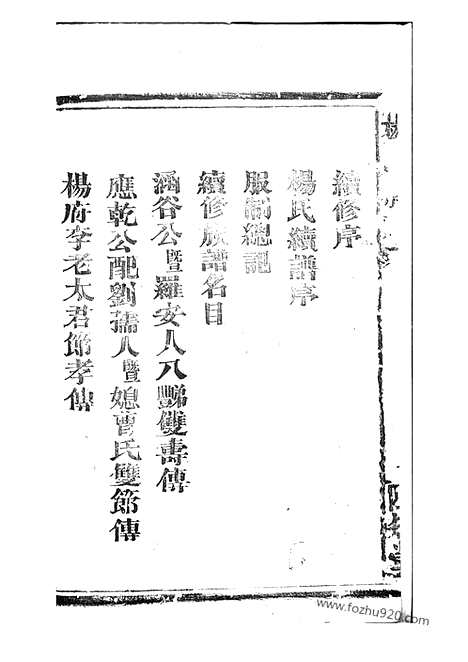 續修序
楊氏續譜序
服制總記
續修族譜名目
涵谷公暨羅安人八豑雙壽傳
應乾公配劉孺人暨媳曹氏雙節傳
楊府李老太君節孝傳
www.fozhu920.com